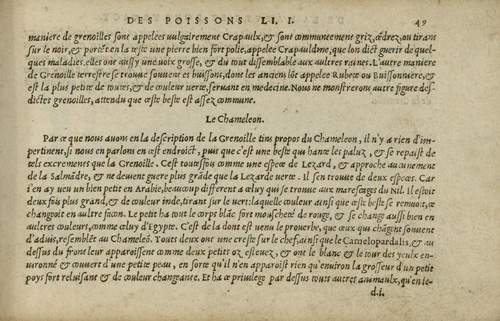 DES POISSONS LI. I. 49
maniere de grenoilles sont appelées vulgairement Crapaulx, & sont communeement griz, cẽdrez, ou tirans
sur le noir, & portẽt en la teste une pierre bien fort polie, appelee Crapauldine, que lon dict guerir de quel-
ques maladies. elles ont aussy une voix grosse, & du tout dissemblable aux autres raines. L'autre maniere
de Grenoille terrestre se trouve souvent es buissons, dont les anciens lôt appelee Rubete ou Buissonniere, &
est la plus petite de toutes, & de couleur verte, servant en medecine. Nous ne monstrerons autre figure des-
dictes grenoilles, attendu que ceste beste est assez commune.
Le Chameleon.
Par ce que nous avons en la description de la Grenoille tins propos du Chameleon, il n'y a rien d'im-
pertinent, si nous en parlons en cest endroict, puis que c'est une beste qui hante les paluz, & se repaist de
tels excrements que la Grenoille. C'est toutesfois comme une espece de Lezard, & approche aucunement
de la Salmãdre, & ne devient guere plus grãde que la Lezarde verte. Il s'en trouve de deux especes. Car
i'en ay veu un bien petit en Arabie, beaucoup different a celuy qui se trouve aux marescages du Nil. Il estoit
deux fois plus grand, & de couleur inde, tirant sur le vert: laquelle couleur ainsi que ceste beste se remuoit, ce
changoit en aultre facon. Le petit ha tout le corps blãc fort mouscheté de rouge, & se change aussi bien en
aultres couleurs, comme celuy d'Egypte. C'est de la dont est venu le proverbe, que ceux qui chãgent souvent
d'advis, resemblẽt au Chameleõ. Touts deux ont une creste sur le chef, ainsi que le Camelopardalis, & au
dessus du front leur apparoissent comme deux petits oz eslevez, & ont le blanc & le tour des yeulx en-
vironné & couvert d'une petite peau, en sorte qu'il n'en apparoist rien qu'environ la grosseur d'un petit
poys fort reluisant & de couleur changeante. Et ha ce privilege par dessus touts autres animaulx, qu'en le-
d.i.